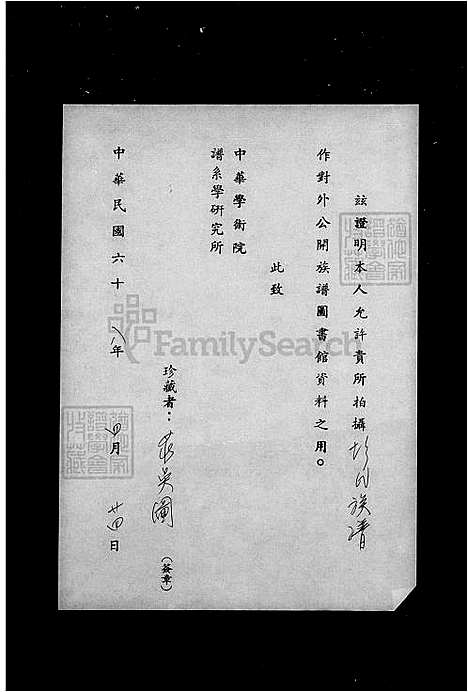 茲證明本人允許貴所拍攝 族譜
作對外公開族譜圖書館資料之用。
此致
中華學術院
譜系學研究所
珍藏者： (簽章)
中華民國六十八年 四月 廿四日
FamilySearch